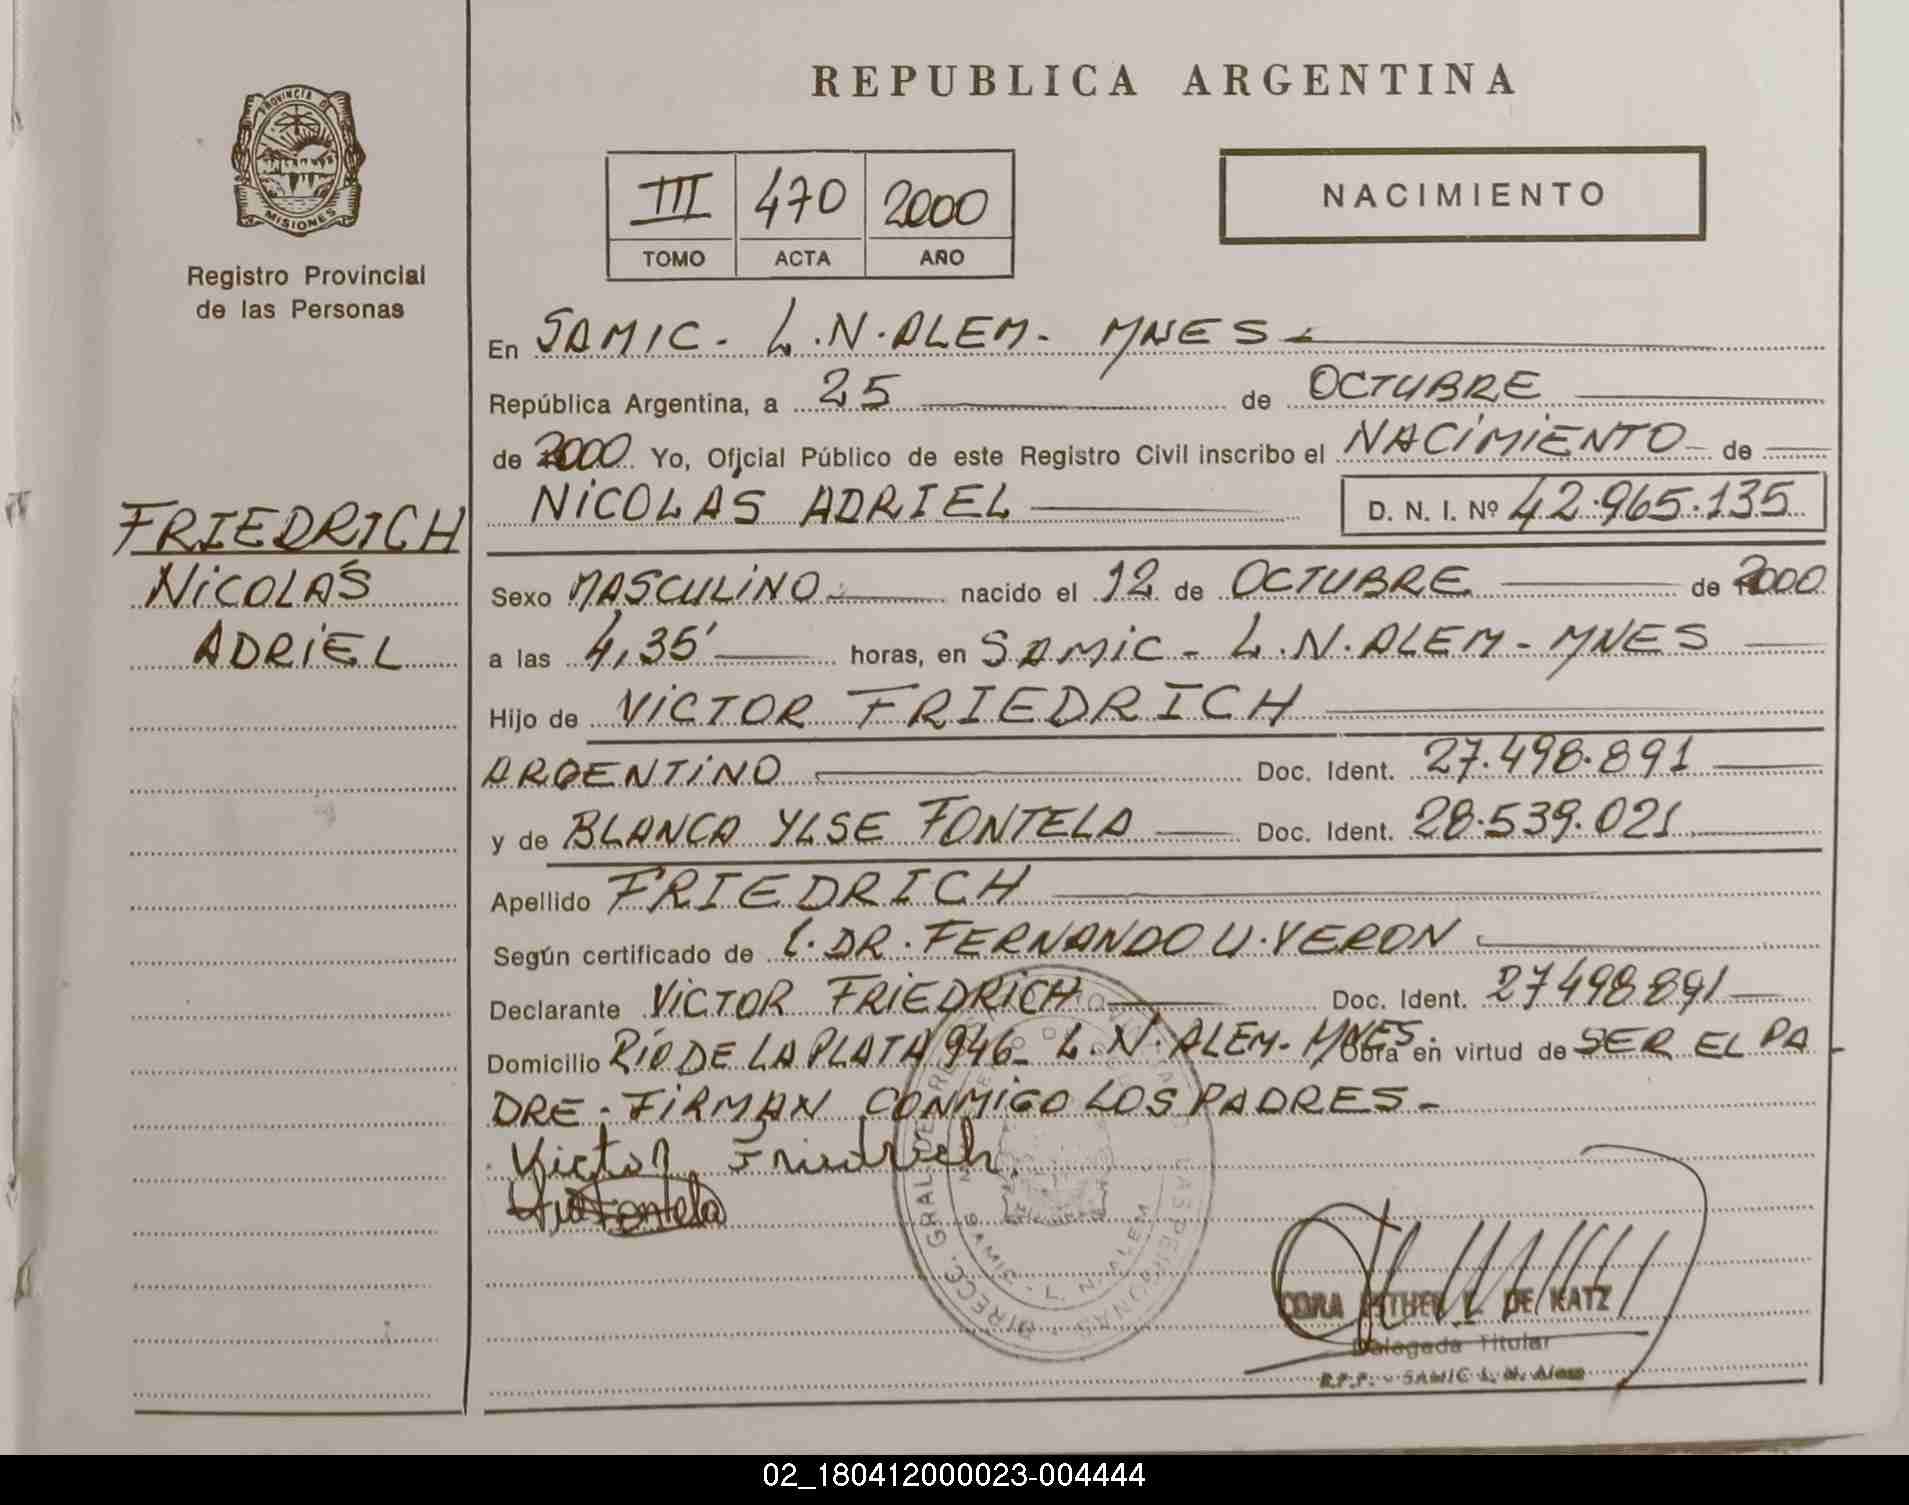 REPUBLICA ARGENTINA
PROVINCIA DE
MISIONES
Registro Provincial
de las Personas
III 470 2000
TOMO ACTA AÑO
NACIMIENTO
FRIEDRICH
NICOLÁS
ADRIEL
En SAMIC - L.N. ALEM - MNES -
República Argentina, a 25 de OCTUBRE
de 2000 Yo, Oficial Público de este Registro Civil inscribo el NACIMIENTO de
NICOLÁS ADRIEL D. N. I. Nº 42.965.135
Sexo MASCULINO nacido el 12 de OCTUBRE de 2000
a las 4,35' horas, en SAMIC - L.N. ALEM - MNES
Hijo de VICTOR FRIEDRICH
ARGENTINO Doc. Ident. 27.498.891
y de BLANCA YLSE FONTELA Doc. Ident. 28.539.021
Apellido FRIEDRICH
Según certificado de DR. FERNANDO U. YERON
Declarante VICTOR FRIEDRICH Doc. Ident. 27498891
Domicilio RIO DE LA PLATA 946 - L.N. ALEM - MNES. Obra en virtud de SER EL PA
DRE - FIRMAN CONMIGO LOS PADRES -
Victor Friedrich
Fontela
CORA ESTHER L. DE KATZ
Delegada Titular
R.P.P. - SAMIC L. N. Alem
02_180412000023-004444